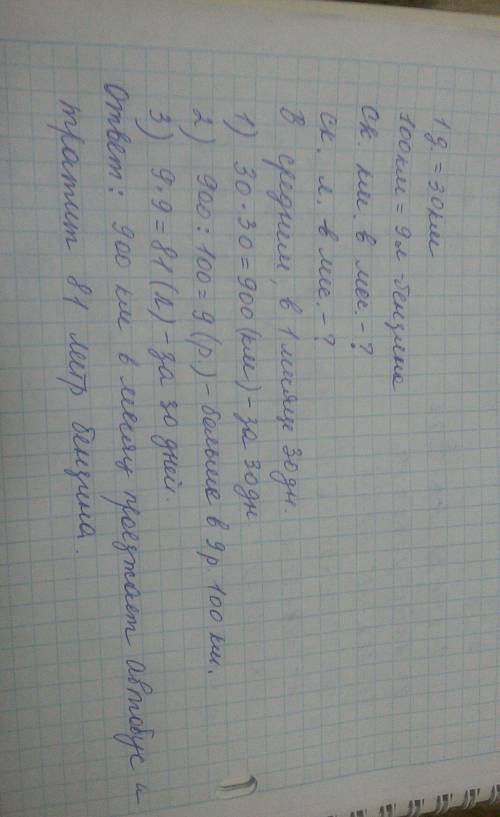 1д = 30км
100км = 9л -бензина
Ск. км. в мес. - ?
Ск. л. в мес. - ?
В среднем, в 1 месяце 30 дн.
1) 30 · 30 = 900 (км) - за 30 дн
2) 900 : 100 = 9 (р.) - больше в 9р 100 км.
3) 9 · 9 = 81 (л) - за 30 дней.
Ответ: 900 км в месяц проезжает автобус и
тратит 81 литр бензина.